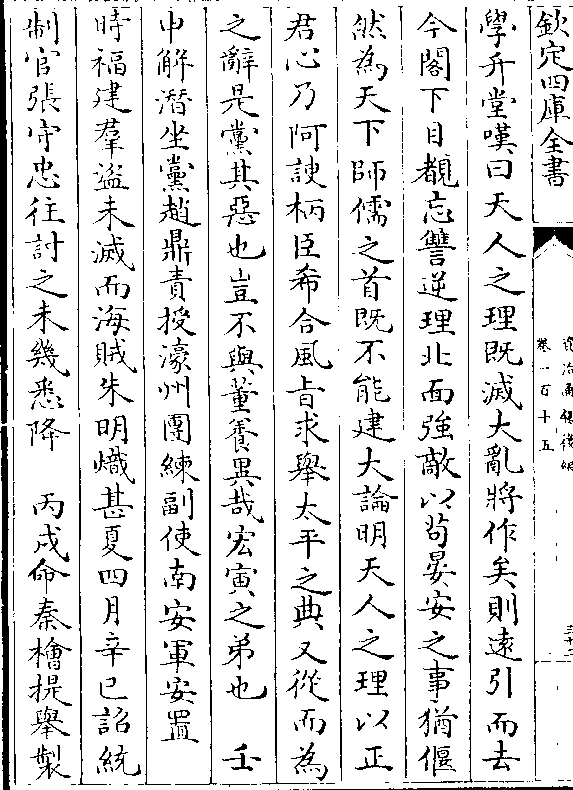 欽定四庫全書
卷一百十五
學升堂嘆曰天人之理既滅大亂將作矣則遠引而去
今閣下目覩忘讐逆理北面強敵以苟晏安之事猶偃
然為天下師儒之首既不能建大論明天人之理以正
君心乃阿諛柄臣希合風旨求舉太平之典又從而為
之辭是黨其惡也豈不與董養異哉宏寅之弟也　壬
申解潛坐黨趙鼎責授濠州團練副使南安軍安置
時福建羣盜未滅而海賊朱明熾甚夏四月辛巳詔統
制官張守忠往討之未幾悉降　丙戌命秦檜提舉製